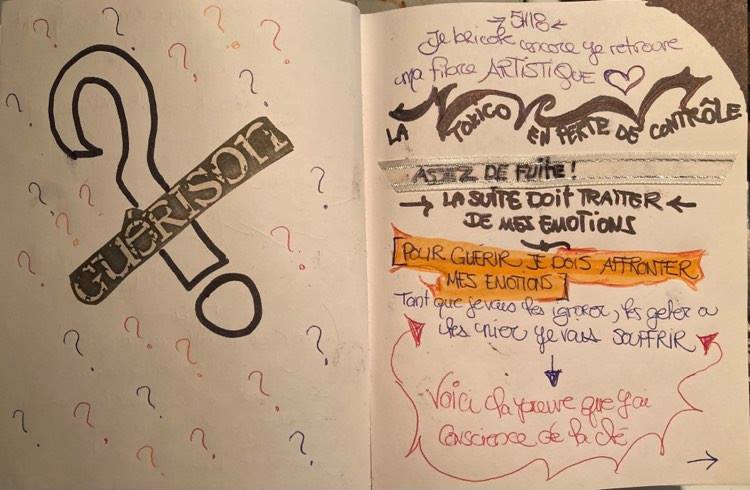 ?
GUÉRISON
→ 5/18 ←
Je bricole encore je retrouve
ma fibre ARTISTIQUE ♡
LA TOXICO EN PERTE DE CONTRÔLE
ASSEZ DE FUITE !
→ LA SUITE DOIT TRAITER ←
DE MES EMOTIONS
POUR GUÉRIR JE DOIS AFFRONTER
MES EMOTIONS
Tant que je vais les ignorer, les geler ou
les nier je vais SOUFFRIR
Voici la preuve que j'ai
conscience de la clé
→